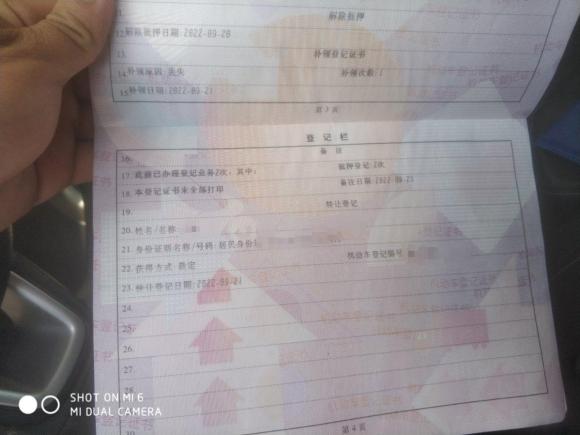 11. 解除抵押
12. 解除抵押日期:2022-09-20
13. 补领登记证书
14. 补领原因:丢失 补领次数:1
15. 补领日期:2022-09-21
第3页
登记栏
16. 备注
17. 此前已办理登记业务2次,其中: 抵押登记:2次
18. 本登记证书未全部打印 备注日期:2022-09-23
19. 转让登记
20. 姓名/名称
21. 身份证明名称/号码:居民身份
22. 获得方式 机动车登记编号
23. 转让登记日期:2022-09-21
24.
25.
26.
27.
28.
第4页
SHOT ON MI 6
MI DUAL CAMERA